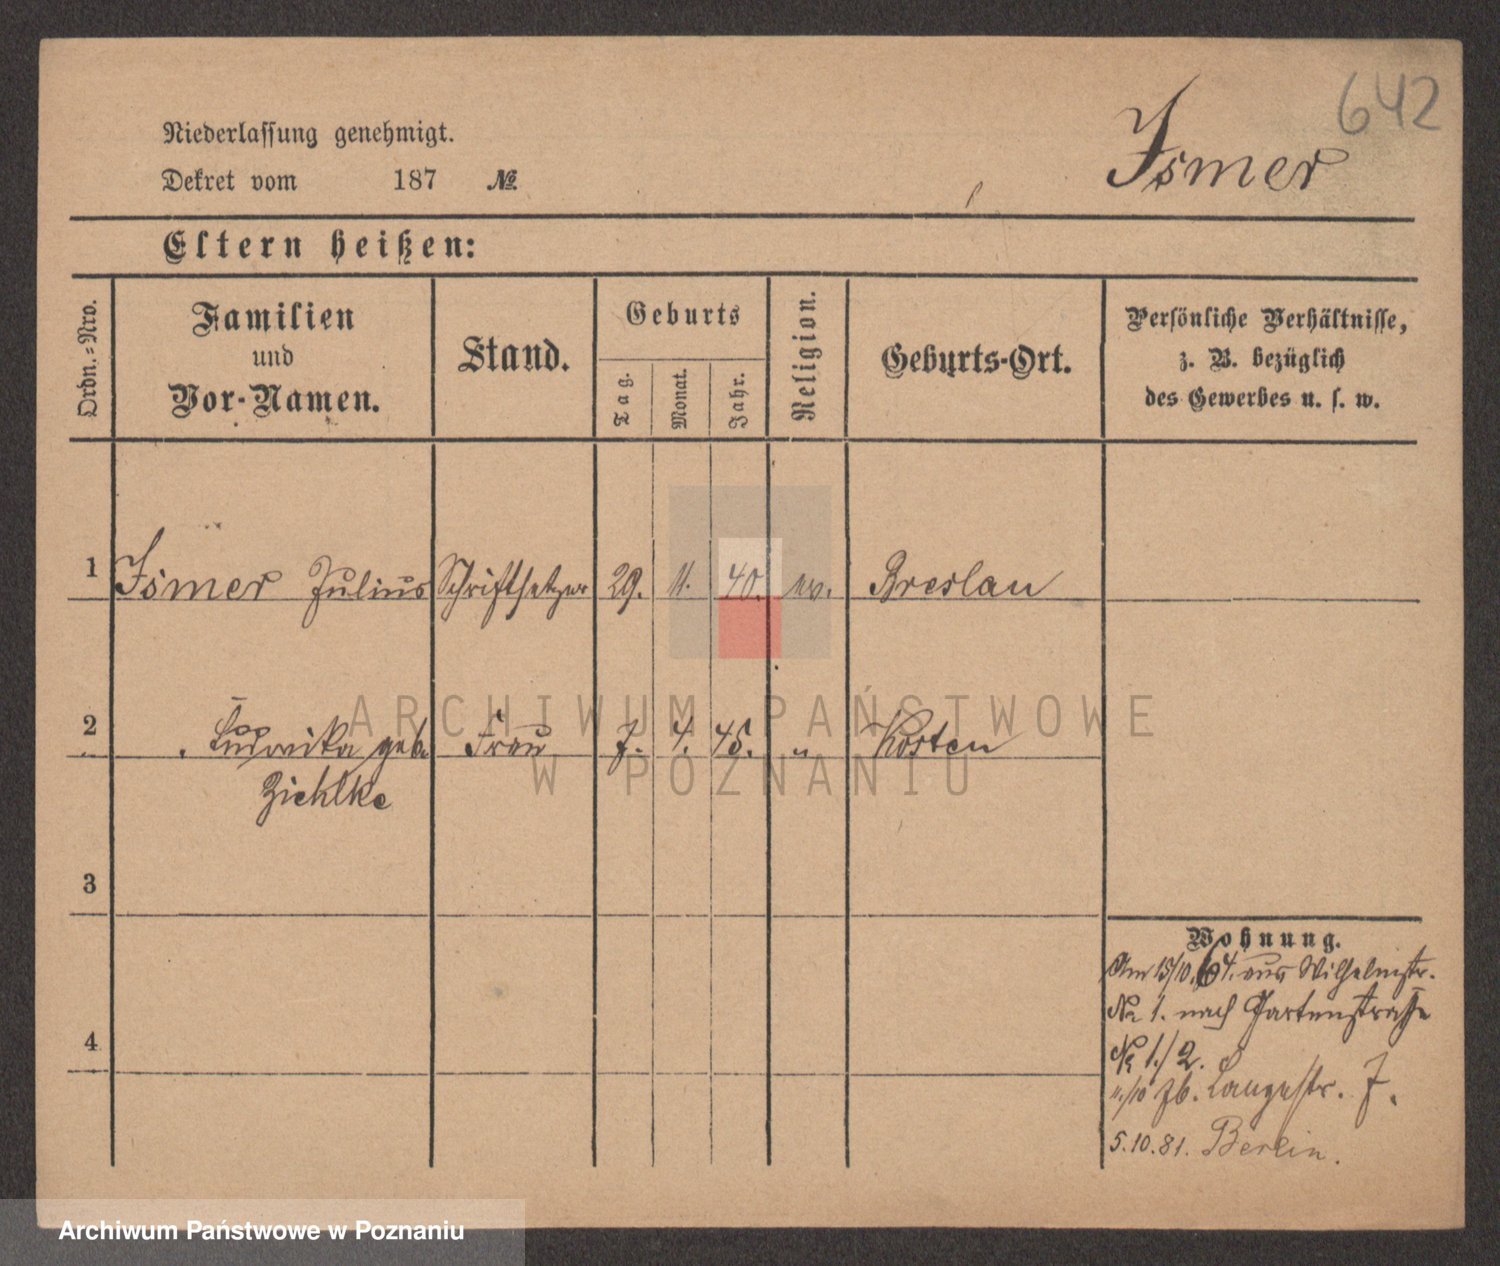 642
Ismer
Niederlassung genehmigt.
Dekret vom 187 №
Eltern heißen:
Ordn.=Nro.
Familien
und
Vor-Namen.
Stand.
Geburts
Tag.
Monat.
Jahr.
Religion.
Geburts-Ort.
Persönliche Verhältnisse,
z. B. bezüglich
des Gewerbes u. s. w.
1 Ismer Julius Schriftsetzer 29. 11. 40. ev. Breslau
2 Ludovika geb. Frau 7. 4. 45. " Kosten
Ziehlke
3
4
Wohnung.
Am 15/10. 64. aus Wilhelmstr.
No 1. nach Gartenstraße
No 1./2.
/10 76. Langestr. 7.
5.10.81. Berlin.
ARCHIWUM PAŃSTWOWE
W POZNANIU
Archiwum Państwowe w Poznaniu